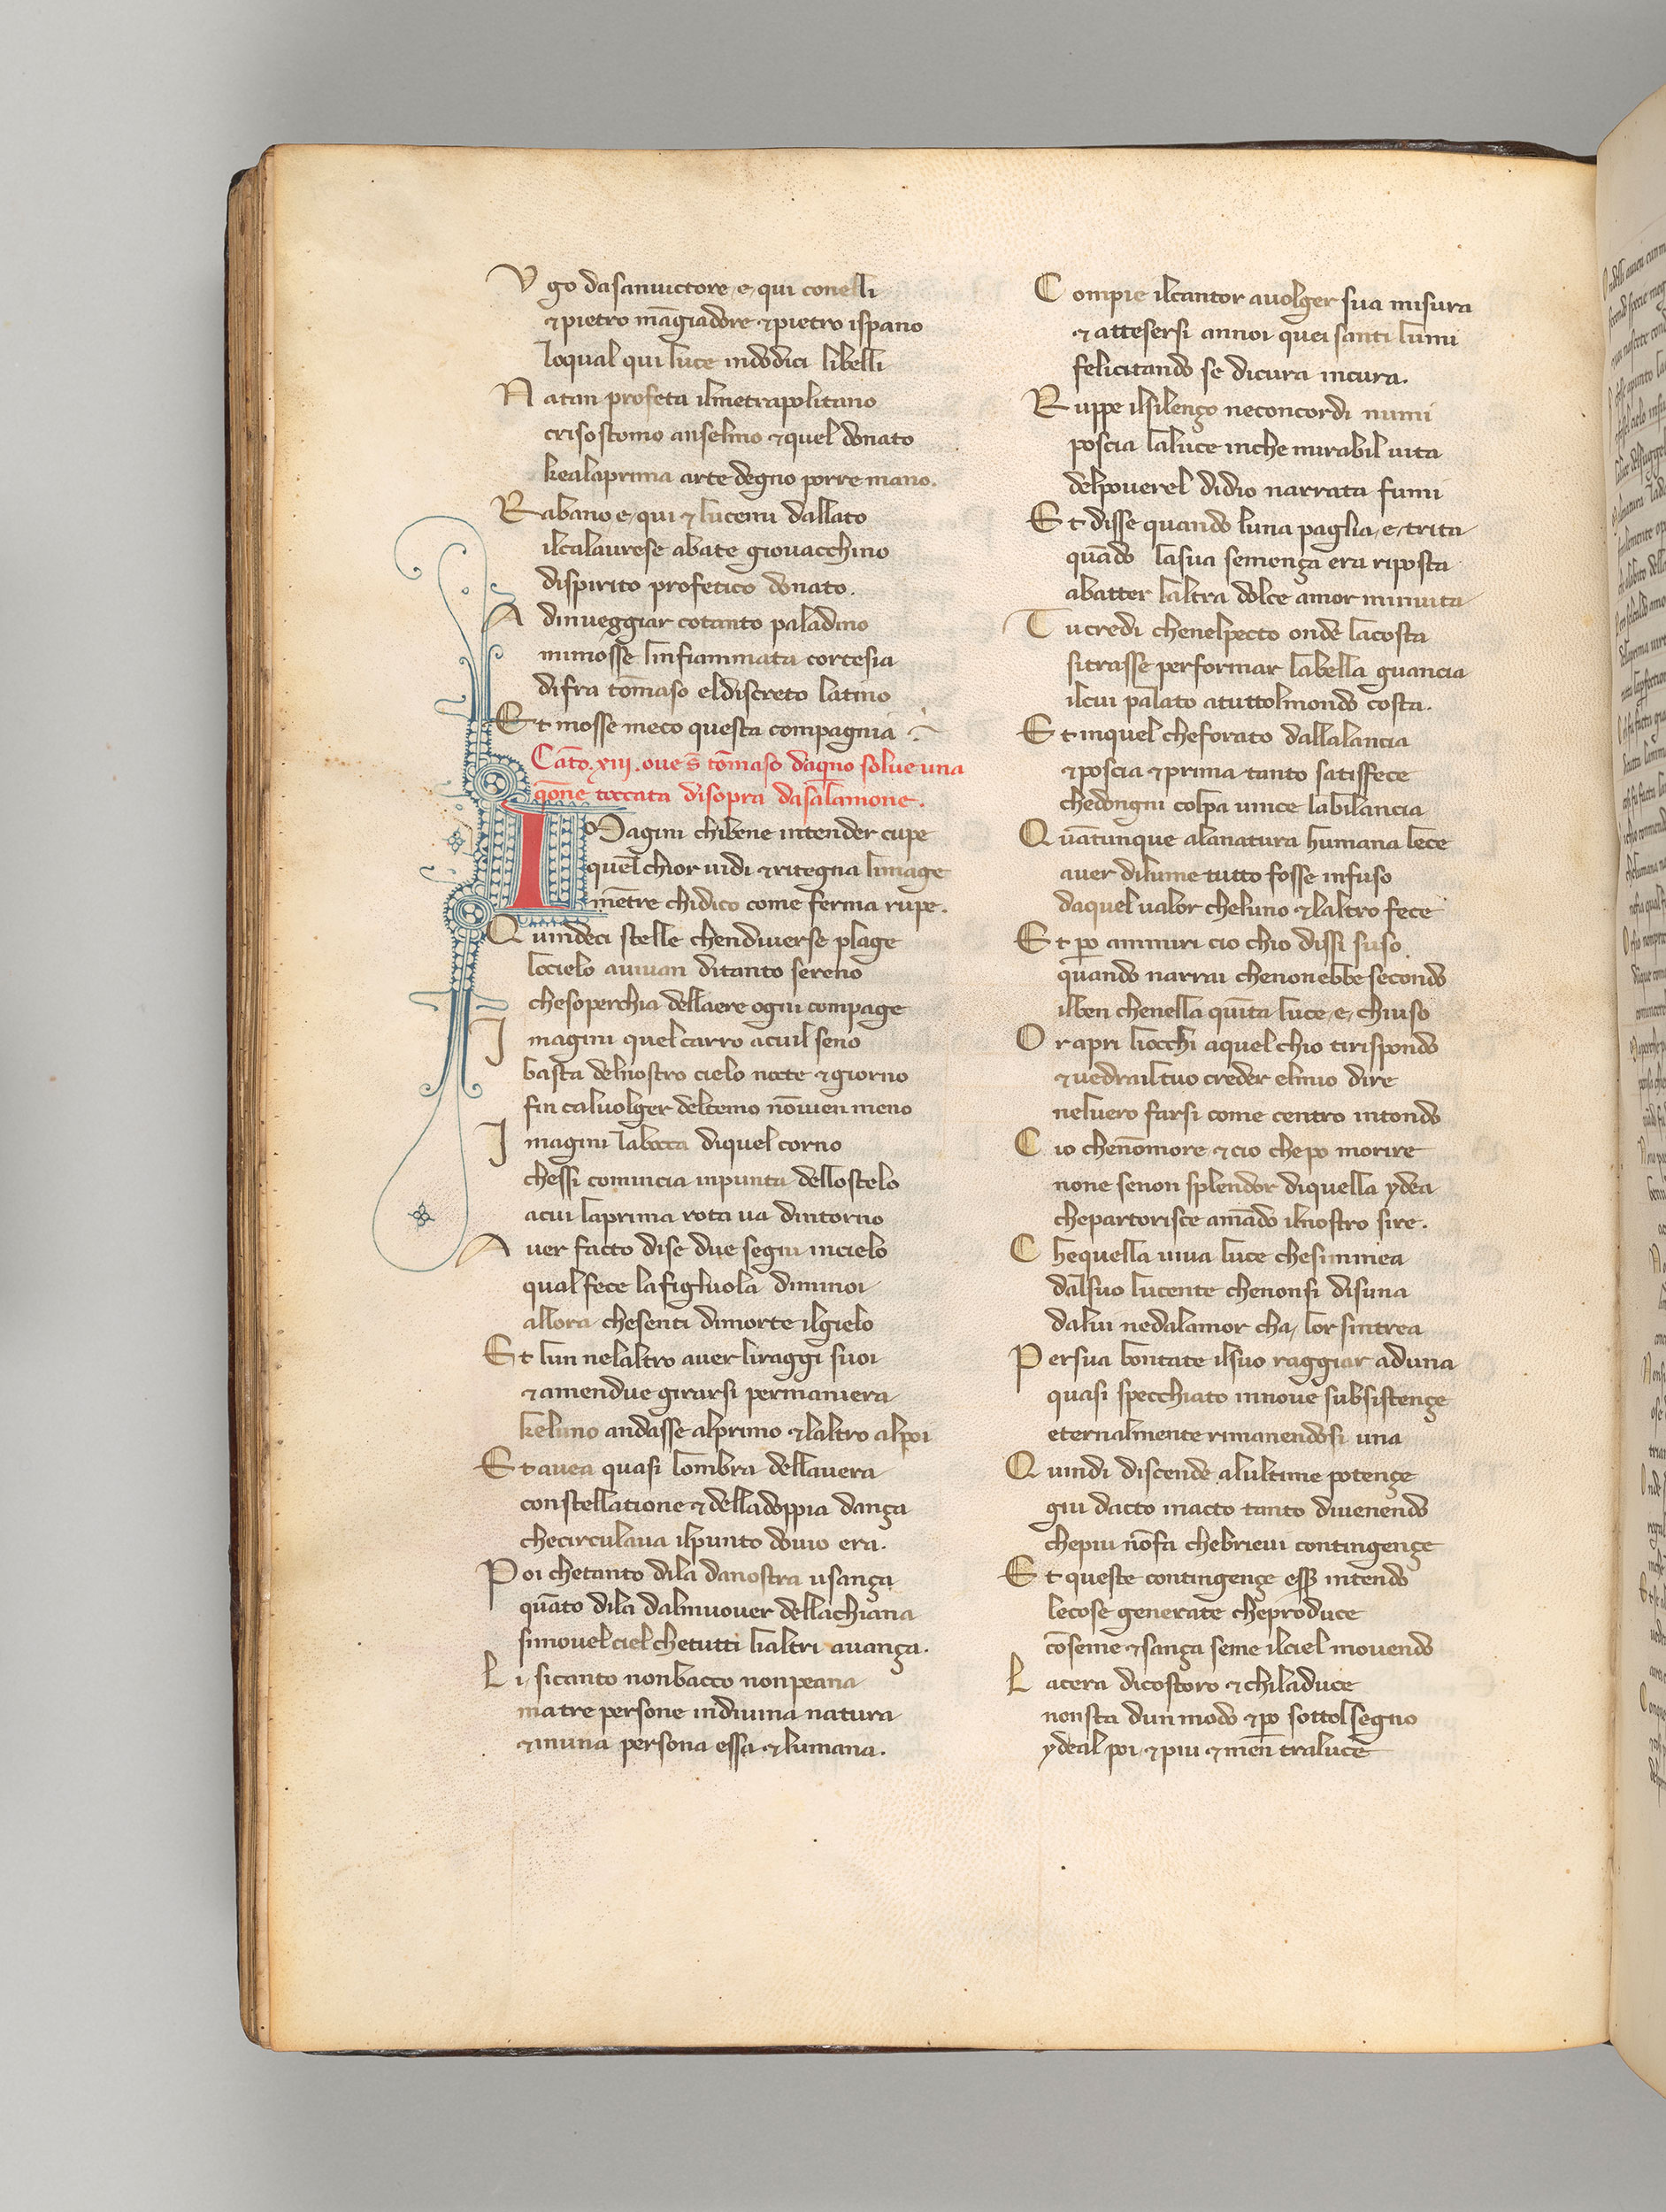 Ugo dasanuictore e qui conelli
⁊ pietro mãgiadore ⁊ pietro ispano
loqual qui luce indodici libelli
Natan profeta ilmetrapolitano
crisostomo anselmo ⁊ quel donato
kealaprima arte degno porre mano.
Rabano e qui ⁊ lucemi dallato
ilcalaurese abate giouacchino
dispirito profetico donato.
Adinueggiar cotanto paladino
mimosse linfiammata cortesia
difra tõmaso eldiscreto latino
Et mosse meco questa compagnia
Cãto. xiij. oue s̃ tõmaso daq̃no solue una
q̃one toccata disopra dasalamone.
IMagini chibene intender cupe
quel chior uidi ⁊ ritegna limage
mẽtre chidico come ferma rupe.
Quindeci stelle chendiuerse plage
locielo auiuan ditanto sereno
chesoperchia dellaere ogni compage
Imagini quel carro acuil seno
basta delnostro cielo nocte ⁊ giorno
sin caluolger deltemo nõuien meno
Imagini labocca diquel corno
chessi comincia inpunta dellostelo
acui laprima rota ua dintorno
Auer facto dise due segni incielo
qual fece lafigliuola diminoi
allora chesenti dimorte ilgielo
Et lun nelaltro auer liraggi suoi
⁊ amendue girarsi permaniera
keluno andasse alprimo ⁊ laltro alpoi
Et auea quasi lombra dellauera
constellatione ⁊ delladoppia dança
checirculaua ilpunto douio era.
Poi chetanto dila danostra usança
quãto dila dalmuouer dellachiana
simouel ciel chetutti lialtri auança.
Li sicanto nonbacco nonpeana
ma tre persone indiuina natura
⁊ inuna persona essa ⁊ lumana.
Compie ilcantor auolger sua misura
⁊ attesersi annoi quei santi lumi
felicitando se dicura incura.
Ruppe ilsilenço neconcordi numi
poscia laluce inche mirabil uita
delpouerel didio narrata fumi
Et disse quando luna paglia e trita
quãdo lasua semença era riposta
abatter laltra dolce amor minuita
Tu credi chenelpecto onde lacosta
sitrasse performar labella guancia
ilcui palato atuttolmondo costa.
Et inquel cheforato dallalancia
⁊ poscia ⁊ prima tanto satisfece
chedongni colpa uince labilancia
Quãtunque alanatura humana lece
auer dilume tutto fosse infuso
daquel ualor cheluno ⁊ laltro fece
Et po ammiri cio chio dissi suso
quando narrai chenonebbe secondo
ilben chenella quĩta luce e chiuso
Or apri liocchi aquel chio tirispondo
⁊ uedrailtuo creder elmio dire
neluero farsi come centro intondo
Cio chenõmore ⁊ cio chepo morire
none senon splendor diquella ydea
chepartorisce amãdo ilnostro sire.
Chequella uiua luce chesimmea
dalsuo lucente chenonsi disuna
dalui nedalamor cha lor sintrea
Persua bontate ilsuo raggiar aduna
quasi specchiato innoue subsistençe
eternalmente rimanendosi una
Quindi discende alultime potençe
giu dacto inacto tanto diuenendo
chepiu nõfa chebrieui contingençe
Et queste contingençe esser intendo
lecose generate cheproduce
cõseme ⁊ sança seme ilciel mouendo
Lacera dicostoro ⁊ chiladuce
nonsta dun modo ⁊ po sottolsegno
ydeal poi ⁊ piu ⁊ men traluce